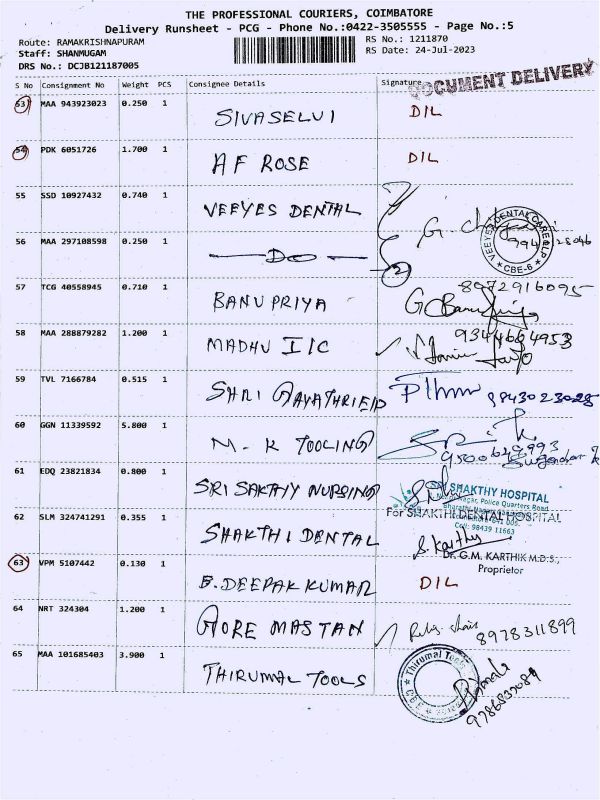 THE PROFESSIONAL COURIERS, COIMBATORE
Delivery Runsheet - PCG - Phone No.:0422-3505555 - Page No.:5
Route: RAMAKRISHNAPURAM RS No.: 1211870
Staff: SHANMUGAM RS Date: 24-Jul-2023
DRS No.: DCJB121187005
DOCUMENT DELIVERY
S No Consignment No Weight PCS Consignee Details Signature
53 MAA 943923023 0.250 1 SIVASELVI DIL
54 PDK 6051726 1.700 1 A F ROSE DIL
55 SSD 10927432 0.740 1 VEEYES DENTAL
VEEYES DENTAL CARE
CBE-6
56 MAA 297108598 0.250 1 DO 2
57 TCG 40558945 0.710 1 BANUPRIYA 8972916095
58 MAA 288879282 1.200 1 MADHU IIC 9344664953
59 TVL 7166784 0.515 1 SHRI GAYATHRI 9843023025
60 GGN 11339592 5.800 1 M-K TOOLING
61 EDQ 23821834 0.800 1 SRI SAKTHY NURSING
SHAKTHY HOSPITAL
Police Quarters Road
Cell: 98439 11663
62 SLM 324741291 0.355 1 SHAKTHI DENTAL
For SHAKTHI DENTAL HOSPITAL
S. Karthy
Dr. G.M. KARTHIK M.D.S.,
Proprietor
63 VPM 5107442 0.130 1 B. DEEPAK KUMAR DIL
64 NRT 324304 1.200 1 GORE MASTAN 8978311899
65 MAA 101685403 3.900 1 THIRUMAL TOOLS
Thirumal Tools